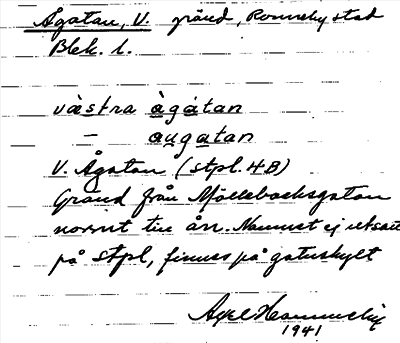 Ågatan, V. gränd, Ronneby stad
Blek. l.
västra àgátan
— augatan
V. Ågatan (stpl. 4B)
Gränd från Möllebacksgatan
norrut till ån. Namnet ej utsatt
på stpl, finnes på gatuskylt
Axel
1941